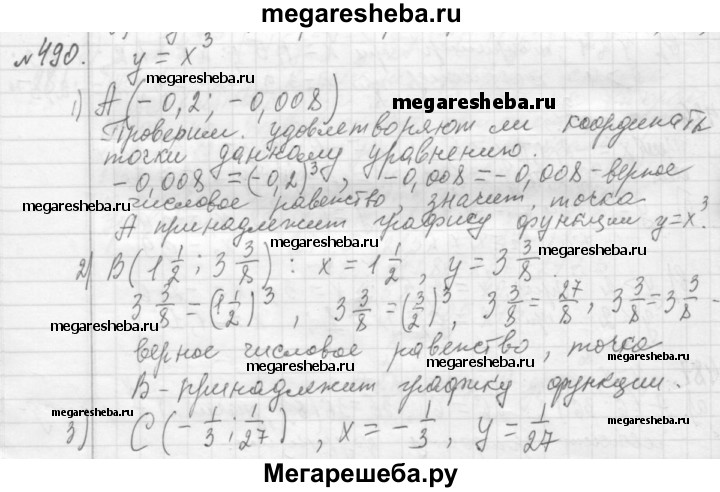 megaresheba.ru
№490. y = x³
megaresheba.ru
megaresheba.ru
1) A(-0,2; -0,008)
megaresheba.ru
Проверим, удовлетворяют ли координаты
точки данному уравнению.
-0,008 = (-0,2)³, -0,008 = -0,008 - верное
числовое равенство, значит, точка
megaresheba.ru
megaresheba.ru
А принадлежит графику функции y=x³.
2) B(1 1/2; 3 3/8): x = 1 1/2, y = 3 3/8
megaresheba.ru
megaresheba.ru
3 3/8 = (1 1/2)³, 3 3/8 = (3/2)³, 3 3/8 = 27/8, 3 3/8 = 3 3/8 -
megaresheba.ru
верное числовое равенство, точка
megaresheba.ru
megaresheba.ru
В - принадлежит графику функции.
megaresheba.ru
megaresheba.ru
megaresheba.ru
3) C(-1/3; 1/27), x = -1/3, y = 1/27
Мегарешеба.ру